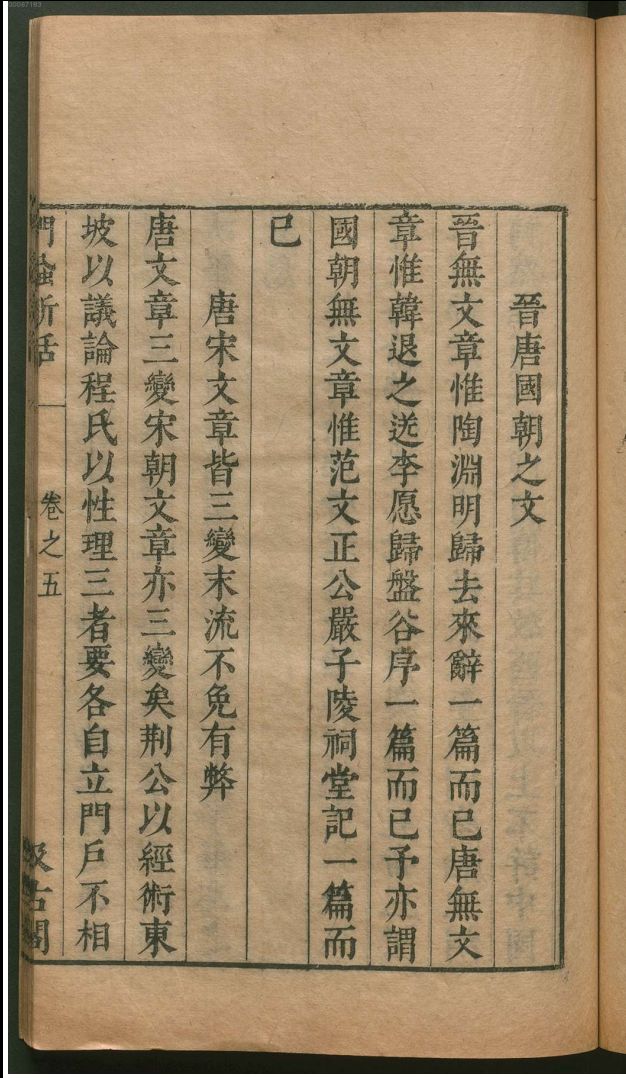 晉唐國朝之文
晉無文章惟陶淵明歸去來辭一篇而已唐無文
章惟韓退之送李愿歸盤谷序一篇而已予亦謂
國朝無文章惟范文正公嚴子陵祠堂記一篇而
已
唐宋文章皆三變末流不免有弊
唐文章三變宋朝文章亦三變矣荆公以經術東
坡以議論程氏以性理三者要各自立門戶不相
門蝨新話 卷之五 汲古閣
00067183